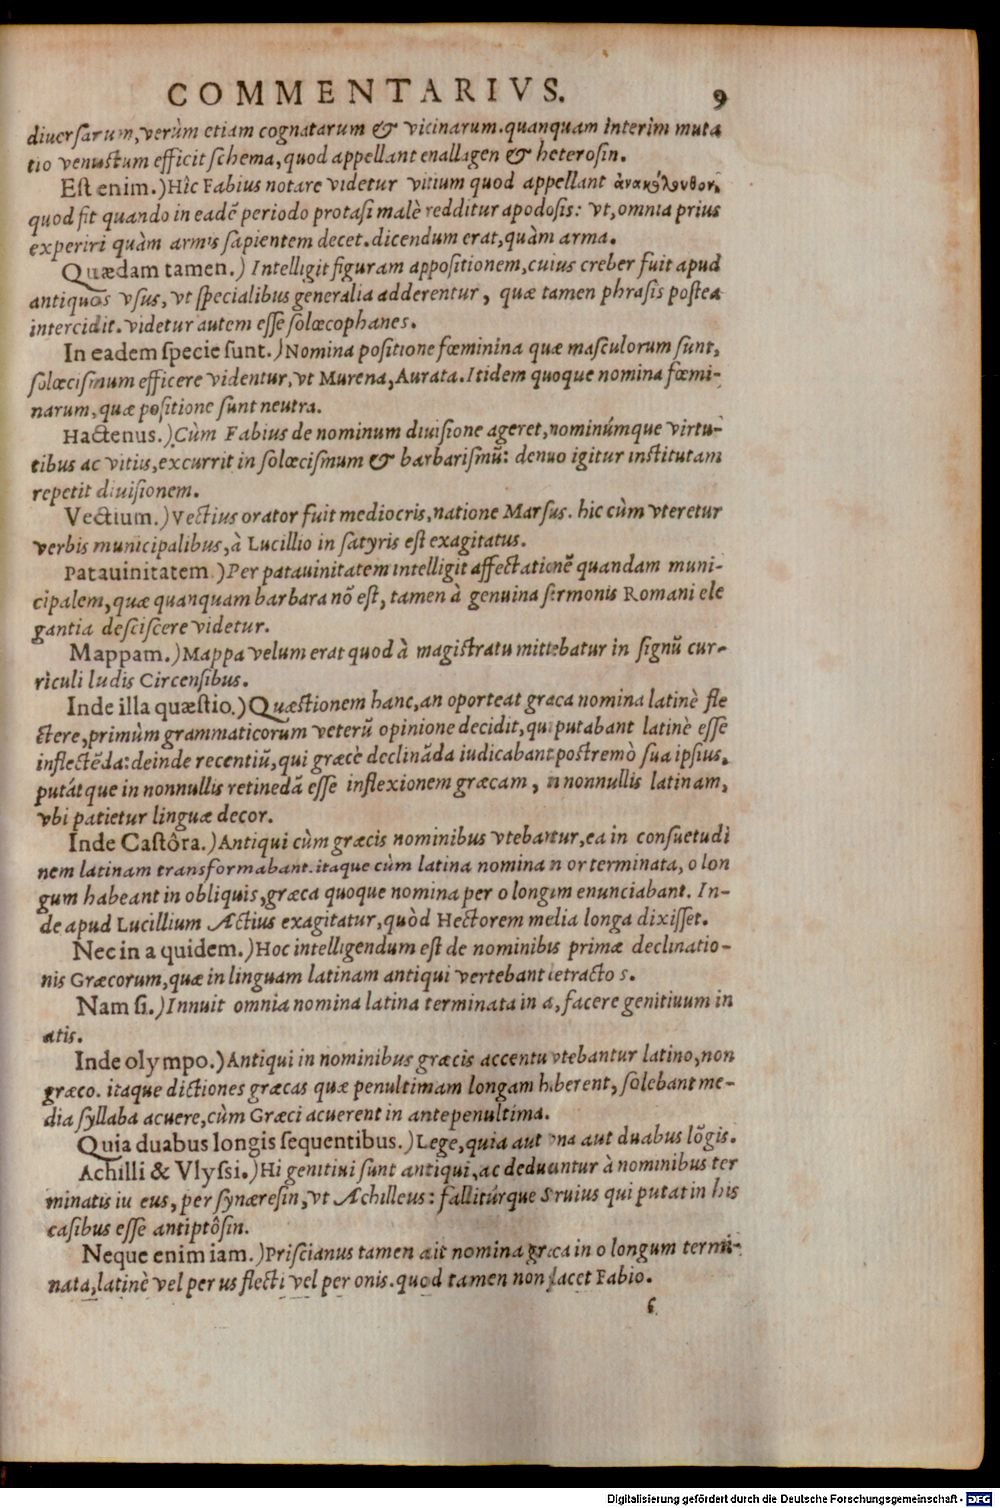 COMMENTARIVS. 9
diuersarum, verùm etiam cognatarum & vicinarum. quanquam interim muta
tio venustum efficit schema, quod appellant enallagen & heterosin.
Est enim.) Hîc Fabius notare videtur vitium quod appellant ἀνακόλουθον,
quod fit quando in eadẽ periodo protasi malè redditur apodosis: vt, omnia prius
experiri quàm armis sapientem decet. dicendum erat, quàm arma.
Quædam tamen.) Intelligit figuram appositionem, cuius creber fuit apud
antiquos vsus, vt specialibus generalia adderentur, quæ tamen phrasis postea
intercidit. videtur autem esse solœcophanes.
In eadem specie sunt.) Nomina positione fœminina quæ masculorum sunt,
solœcismum efficere videntur, vt Murena, Aurata. Itidem quoque nomina fœmi-
narum, quæ positione sunt neutra.
Hactenus.) Cùm Fabius de nominum diuisione ageret, nominúmque virtu-
tibus ac vitiis, excurrit in solœcismum & barbarismũ: denuo igitur institutam
repetit diuisionem.
Vectium.) Vectius orator fuit mediocris, natione Marsus. hic cùm vteretur
verbis municipalibus, à Lucillio in satyris est exagitatus.
Patauinitatem.) Per patauinitatem intelligit affectationẽ quandam muni-
cipalem, quæ quanquam barbara nõ est, tamen à genuina sermonis Romani ele
gantia desciscere videtur.
Mappam.) Mappa velum erat quod à magistratu mittebatur in signũ cur-
riculi ludis Circensibus.
Inde illa quæstio.) Quæstionem hanc, an oporteat græca nomina latinè fle
ctere, primùm grammaticorum veterũ opinione decidit, qui putabant latinè esse
inflectẽda: deinde recentiũ, qui græcè declinãda iudicabant postremò sua ipsius,
putátque in nonnullis retinedã esse inflexionem græcam, in nonnullis latinam,
vbi patietur linguæ decor.
Inde Castôra.) Antiqui cùm græcis nominibus vtebantur, ea in consuetudi
nem latinam transformabant. itaque cùm latina nomina in or terminata, o lon
gum habeant in obliquis, græca quoque nomina per o longum enunciabant. In-
de apud Lucillium Æctius exagitatur, quòd Hectorem media longa dixisset.
Nec in a quidem.) Hoc intelligendum est de nominibus primæ declinatio-
nis Græcorum, quæ in linguam latinam antiqui vertebant detracto s.
Nam si.) Innuit omnia nomina latina terminata in a, facere genitiuum in
atis.
Inde olympo.) Antiqui in nominibus græcis accentu vtebantur latino, non
græco. itaque dictiones græcas quæ penultimam longam haberent, solebant me-
dia syllaba acuere, cùm Græci acuerent in antepenultima.
Quia duabus longis sequentibus.) Lege, quia aut vna aut duabus lõgis.
Achilli & Vlyssi.) Hi genitiui sunt antiqui, ac deducuntur à nominibus ter
minatis in eus, per synæresin, vt Achilleus: fallitúrque Seruius qui putat in his
casibus esse antiptôsin.
Neque enim iam.) Priscianus tamen ait nomina græca in o longum termi-
nata, latinè vel per us flecti vel per onis. quod tamen non placet Fabio.
Digitalisierung gefördert durch die Deutsche Forschungsgemeinschaft - DFG